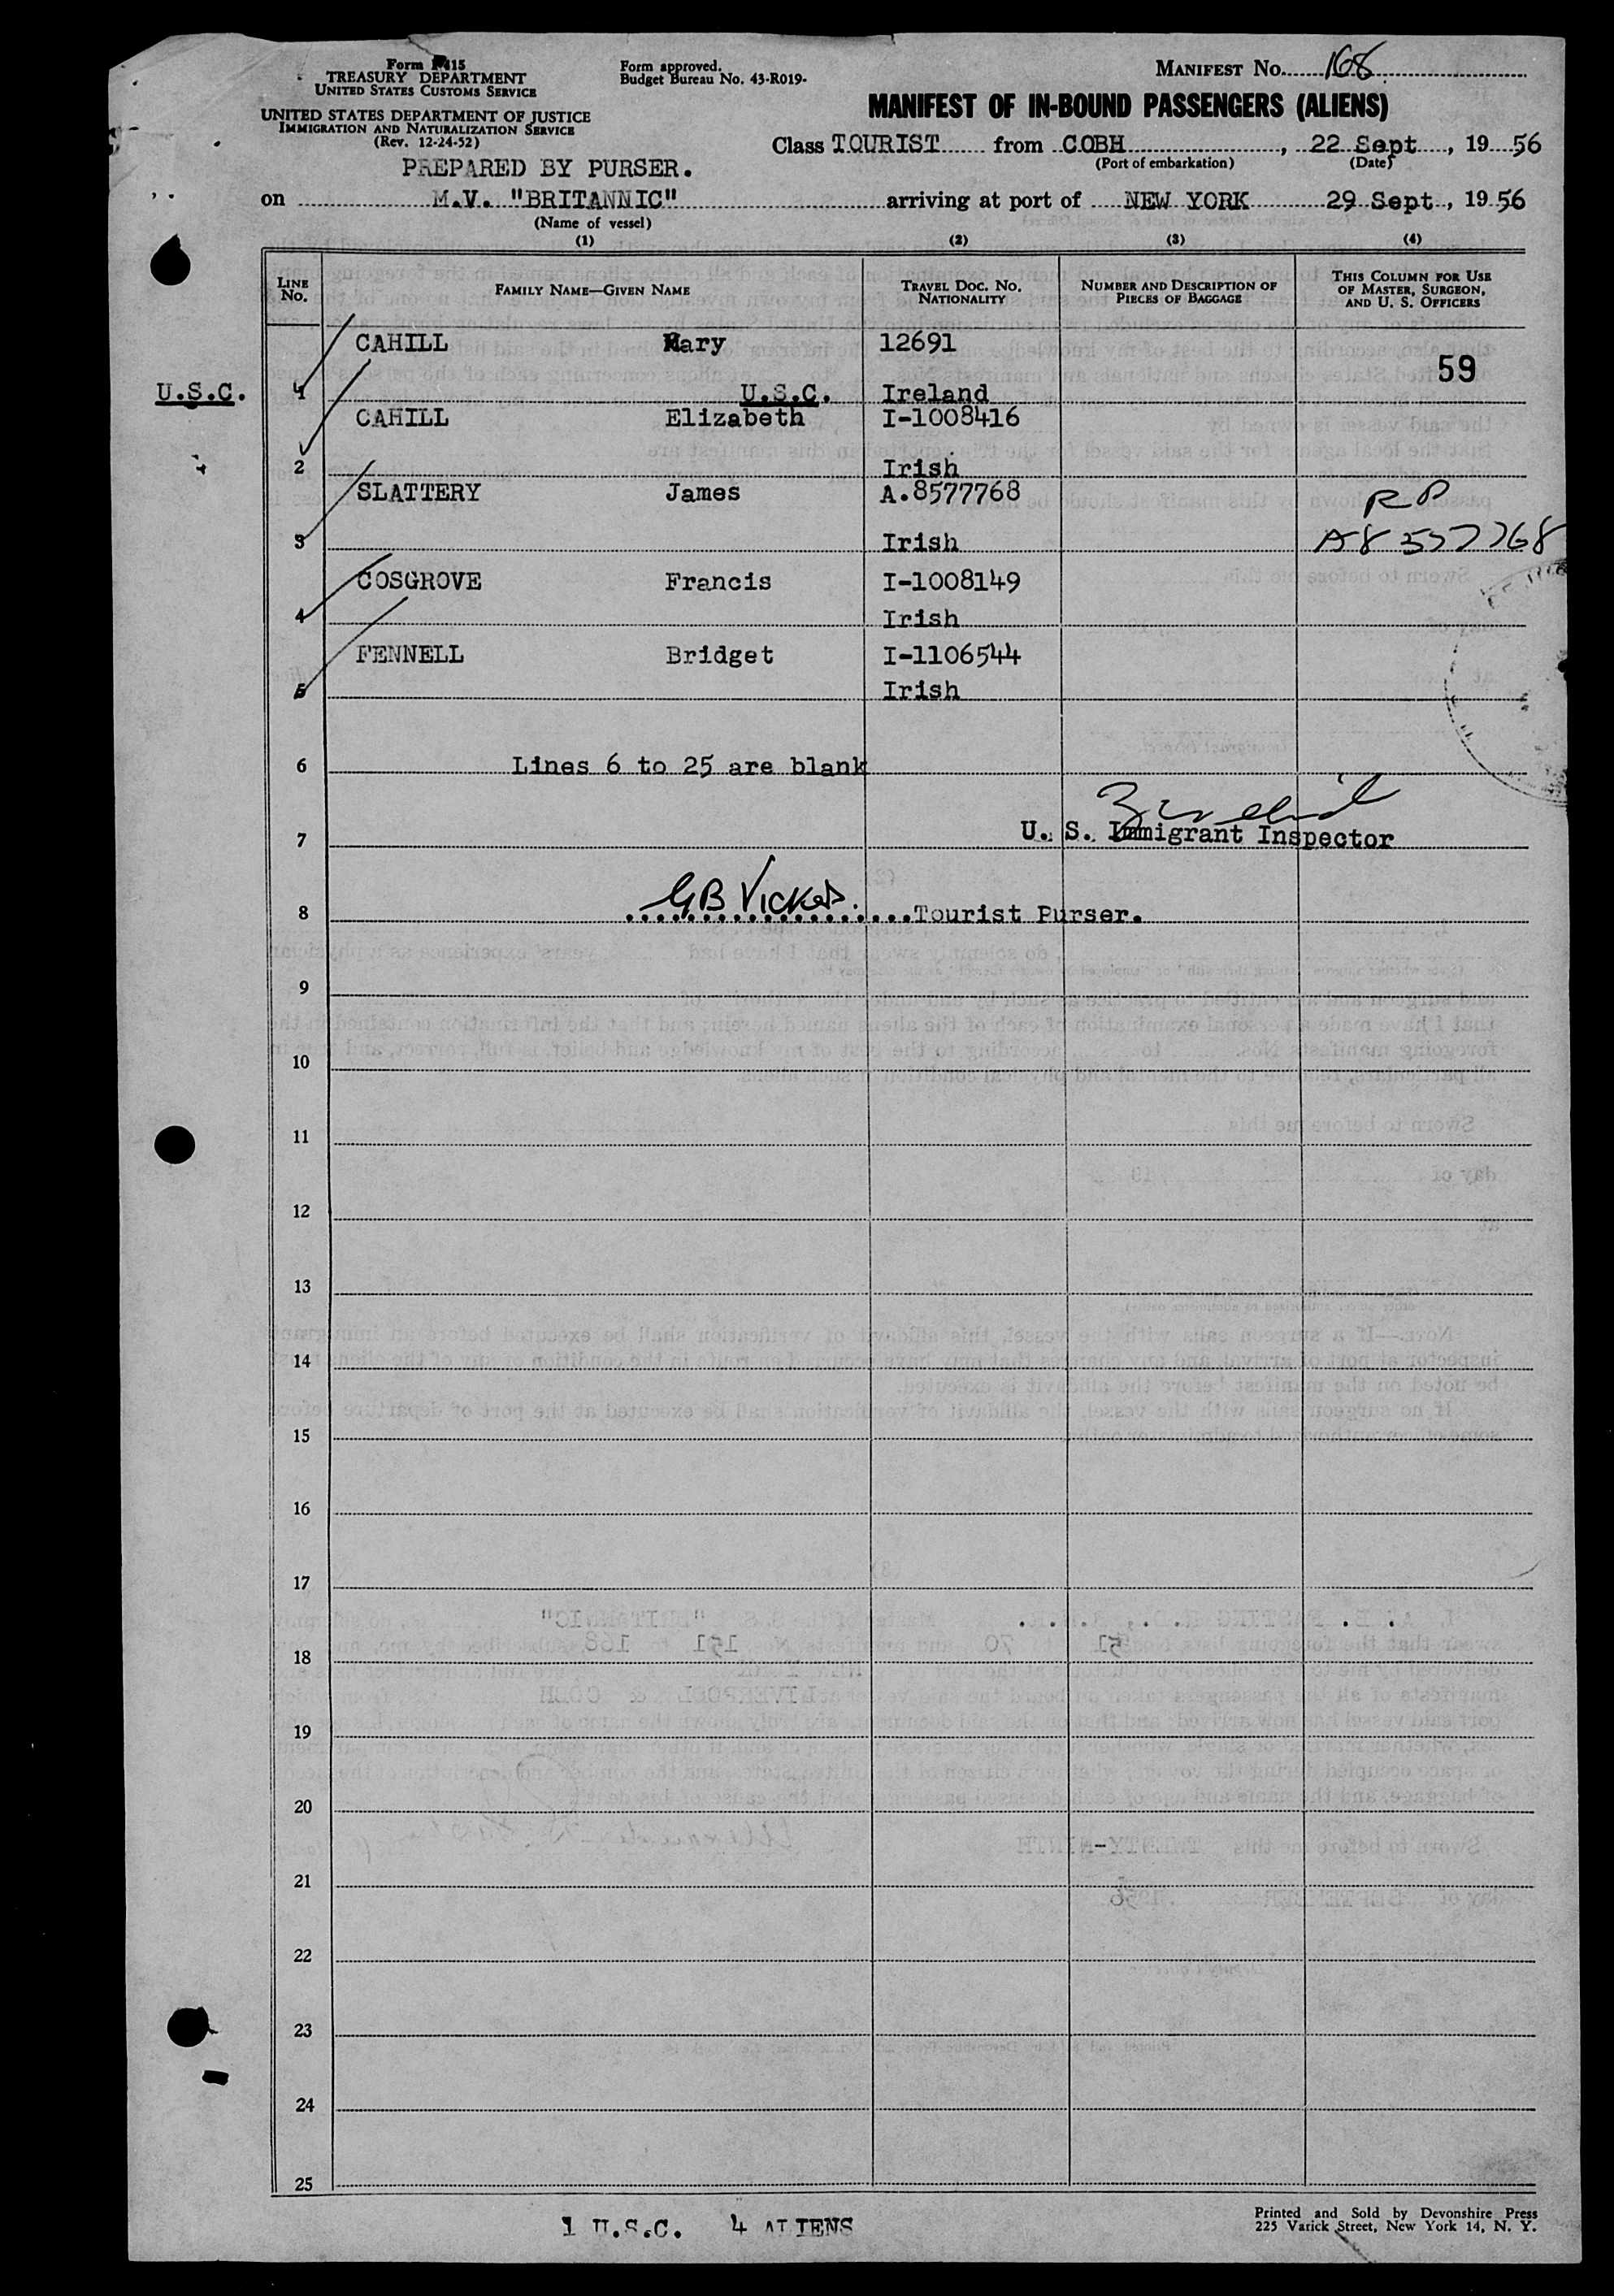 Form I-415
TREASURY DEPARTMENT
UNITED STATES CUSTOMS SERVICE
UNITED STATES DEPARTMENT OF JUSTICE
IMMIGRATION AND NATURALIZATION SERVICE
(Rev. 12-24-52)
Form approved.
Budget Bureau No. 43-R019-
MANIFEST No. 168
MANIFEST OF IN-BOUND PASSENGERS (ALIENS)
Class TOURIST from COBH, 22 Sept, 19 56
(Port of embarkation) (Date)
PREPARED BY PURSER.
on M.V. "BRITANNIC" arriving at port of NEW YORK 29 Sept, 19 56
(Name of vessel)
(1) (2) (3) (4)
LINE No. FAMILY NAME—GIVEN NAME TRAVEL DOC. No. NATIONALITY NUMBER AND DESCRIPTION OF PIECES OF BAGGAGE THIS COLUMN FOR USE OF MASTER, SURGEON, AND U. S. OFFICERS
CAHILL Mary 12691
59
U.S.C. 1 U.S.C. Ireland
CAHILL Elizabeth I-1008416
2 Irish
SLATTERY James A.8577768 RP
3 Irish A8 577768
COSGROVE Francis I-1008149
4 Irish
FENNELL Bridget I-1106544
5 Irish
6 Lines 6 to 25 are blank
7 U. S. Immigrant Inspector
8 GB Vickers. Tourist Purser.
9
10
11
12
13
14
15
16
17
18
19
20
21
22
23
24
25
1 U.S.C. 4 ALIENS
Printed and Sold by Devonshire Press
225 Varick Street, New York 14, N. Y.